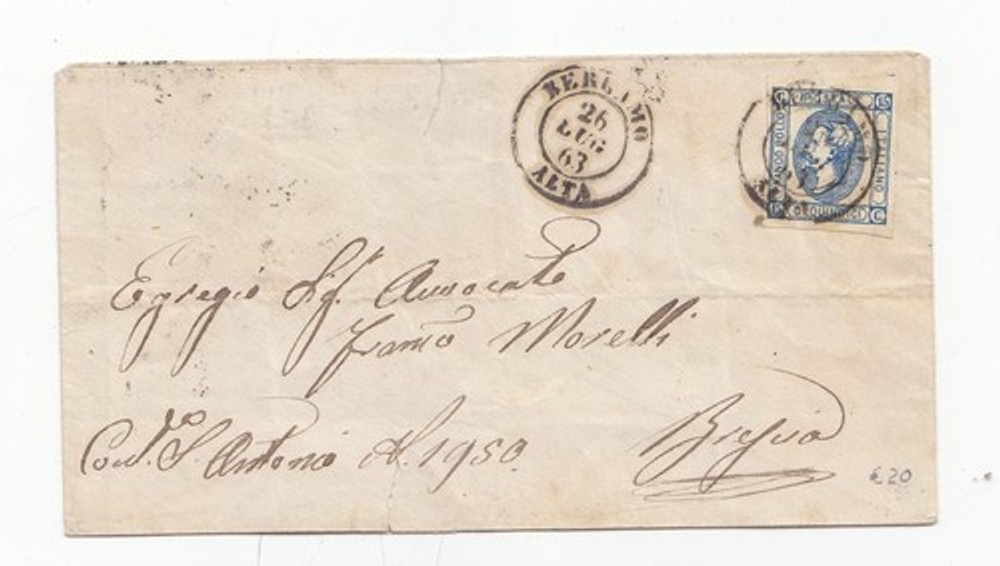 BERGAMO
26
LUG
63
ALTA
C. 15
FRANCO BOLLO
ITALIANO
15 C.
QUINDICI
Egregio Sig.r Avvocato
Franc.o Morelli
Con.a S. Antonio N. 1950.
Brescia
€ 20